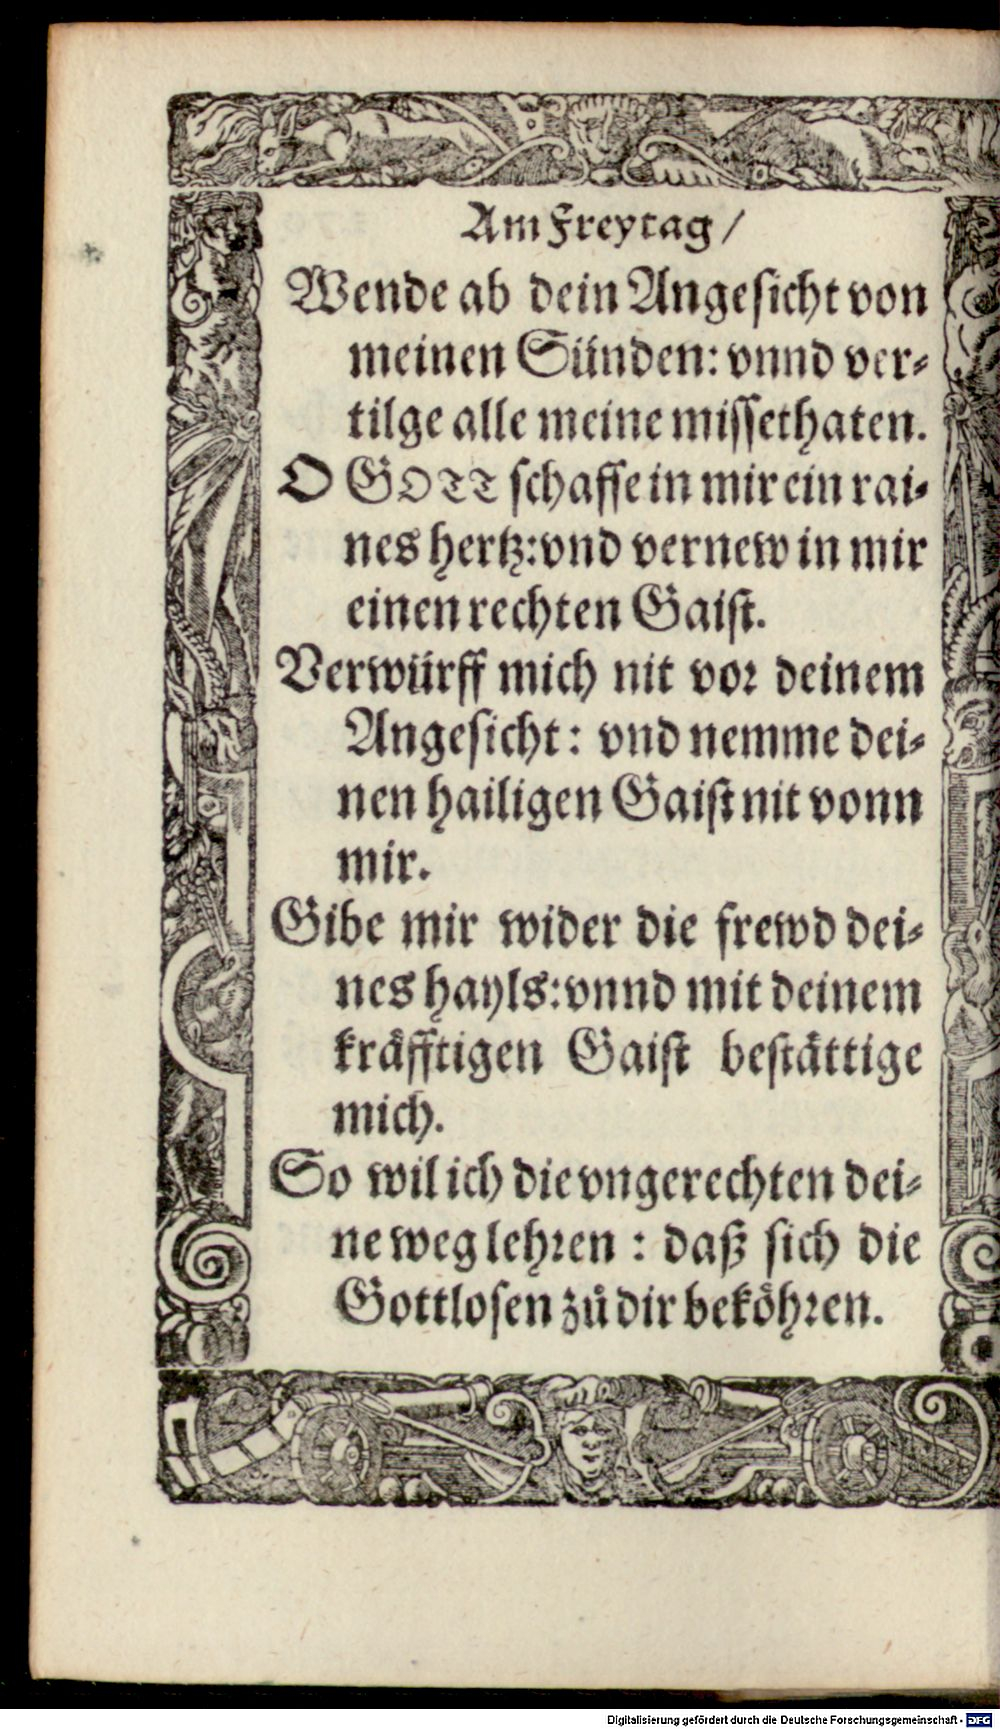 Am Freytag /
Wende ab dein Angesicht von
meinen Sünden: vnnd ver⸗
tilge alle meine missethaten.
O GOTT schaffe in mir ein rai⸗
nes hertz: vnd vernew in mir
einen rechten Gaist.
Verwürff mich nit vor deinem
Angesicht: vnd nemme dei⸗
nen hailigen Gaist nit vonn
mir.
Gibe mir wider die frewd dei⸗
nes hayls: vnnd mit deinem
kräfftigen Gaist bestättige
mich.
So wil ich die vngerechten dei⸗
ne weg lehren : daß sich die
Gottlosen zů dir beköhren.
Digitalisierung gefördert durch die Deutsche Forschungsgemeinschaft - DFG